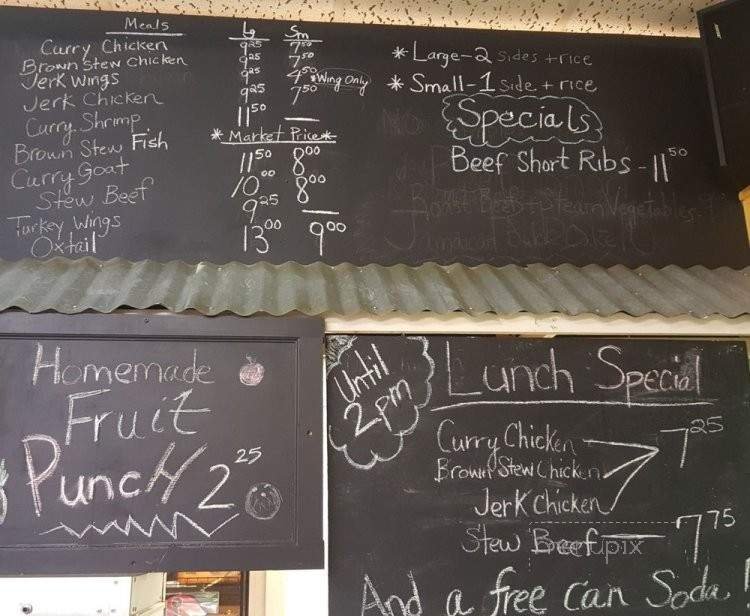 Meals Lg Sm
Curry Chicken 9 25 7 50
Brown Stew Chicken 9 25 7 50
Jerk Wings 9 25 4 50 *Wing Only
Jerk Chicken 9 25 7 50
Curry Shrimp 11 50 —
Brown Stew Fish *Market Price*
Curry Goat 11 50 8 00
Stew Beef 10 00 8 00
Turkey Wings 9 25 —
Oxtail 13 00 9 00
* Large-2 sides + rice
* Small-1 side + rice
Specials
Beef Short Ribs - 11 50
Homemade
Fruit
Punch 2 25
Until
2pm
Lunch Special
Curry Chicken
Brown Stew Chicken 7 25
Jerk Chicken
Stew Beef — 7 75
And a free can Soda!